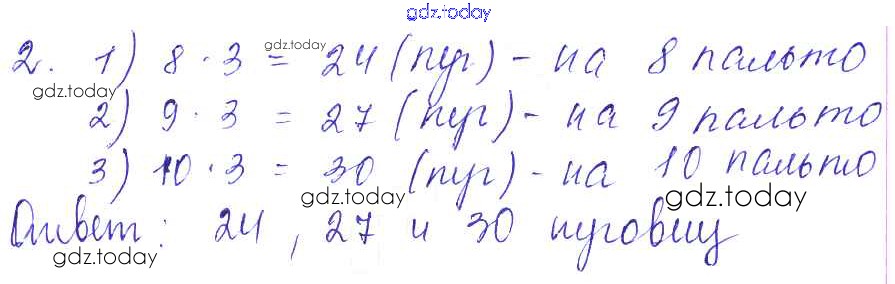 gdz.today
2. 1) 8 · 3 = 24 (пуг) - на 8 пальто
gdz.today
gdz.today
2) 9 · 3 = 27 (пуг) - на 9 пальто
3) 10 · 3 = 30 (пуг) - на 10 пальто
gdz.today
gdz.today
Ответ: 24, 27 и 30 пуговиц
gdz.today